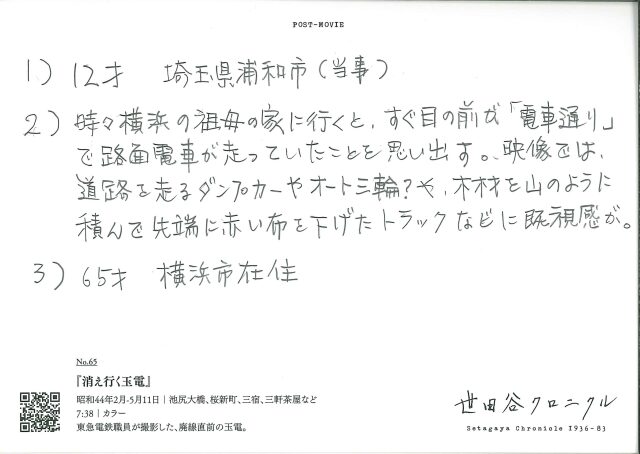 POST-MOVIE
1) 12才 埼玉県浦和市(当事)
2) 時々横浜の祖母の家に行くと、すぐ目の前が「電車通り」
で路面電車が走っていたことを思い出す。映像では、
道路を走るダンプカーやオート三輪?や、木材を山のように
積んで先端に赤い布を下げたトラックなどに既視感が。
3) 65才 横浜市在住
No.65
『消え行く玉電』
昭和44年2月-5月11日|池尻大橋、桜新町、三宿、三軒茶屋など
7:38|カラー
東急電鉄職員が撮影した、廃線直前の玉電。
世田谷クロニクル
Setagaya Chronicle 1936-83